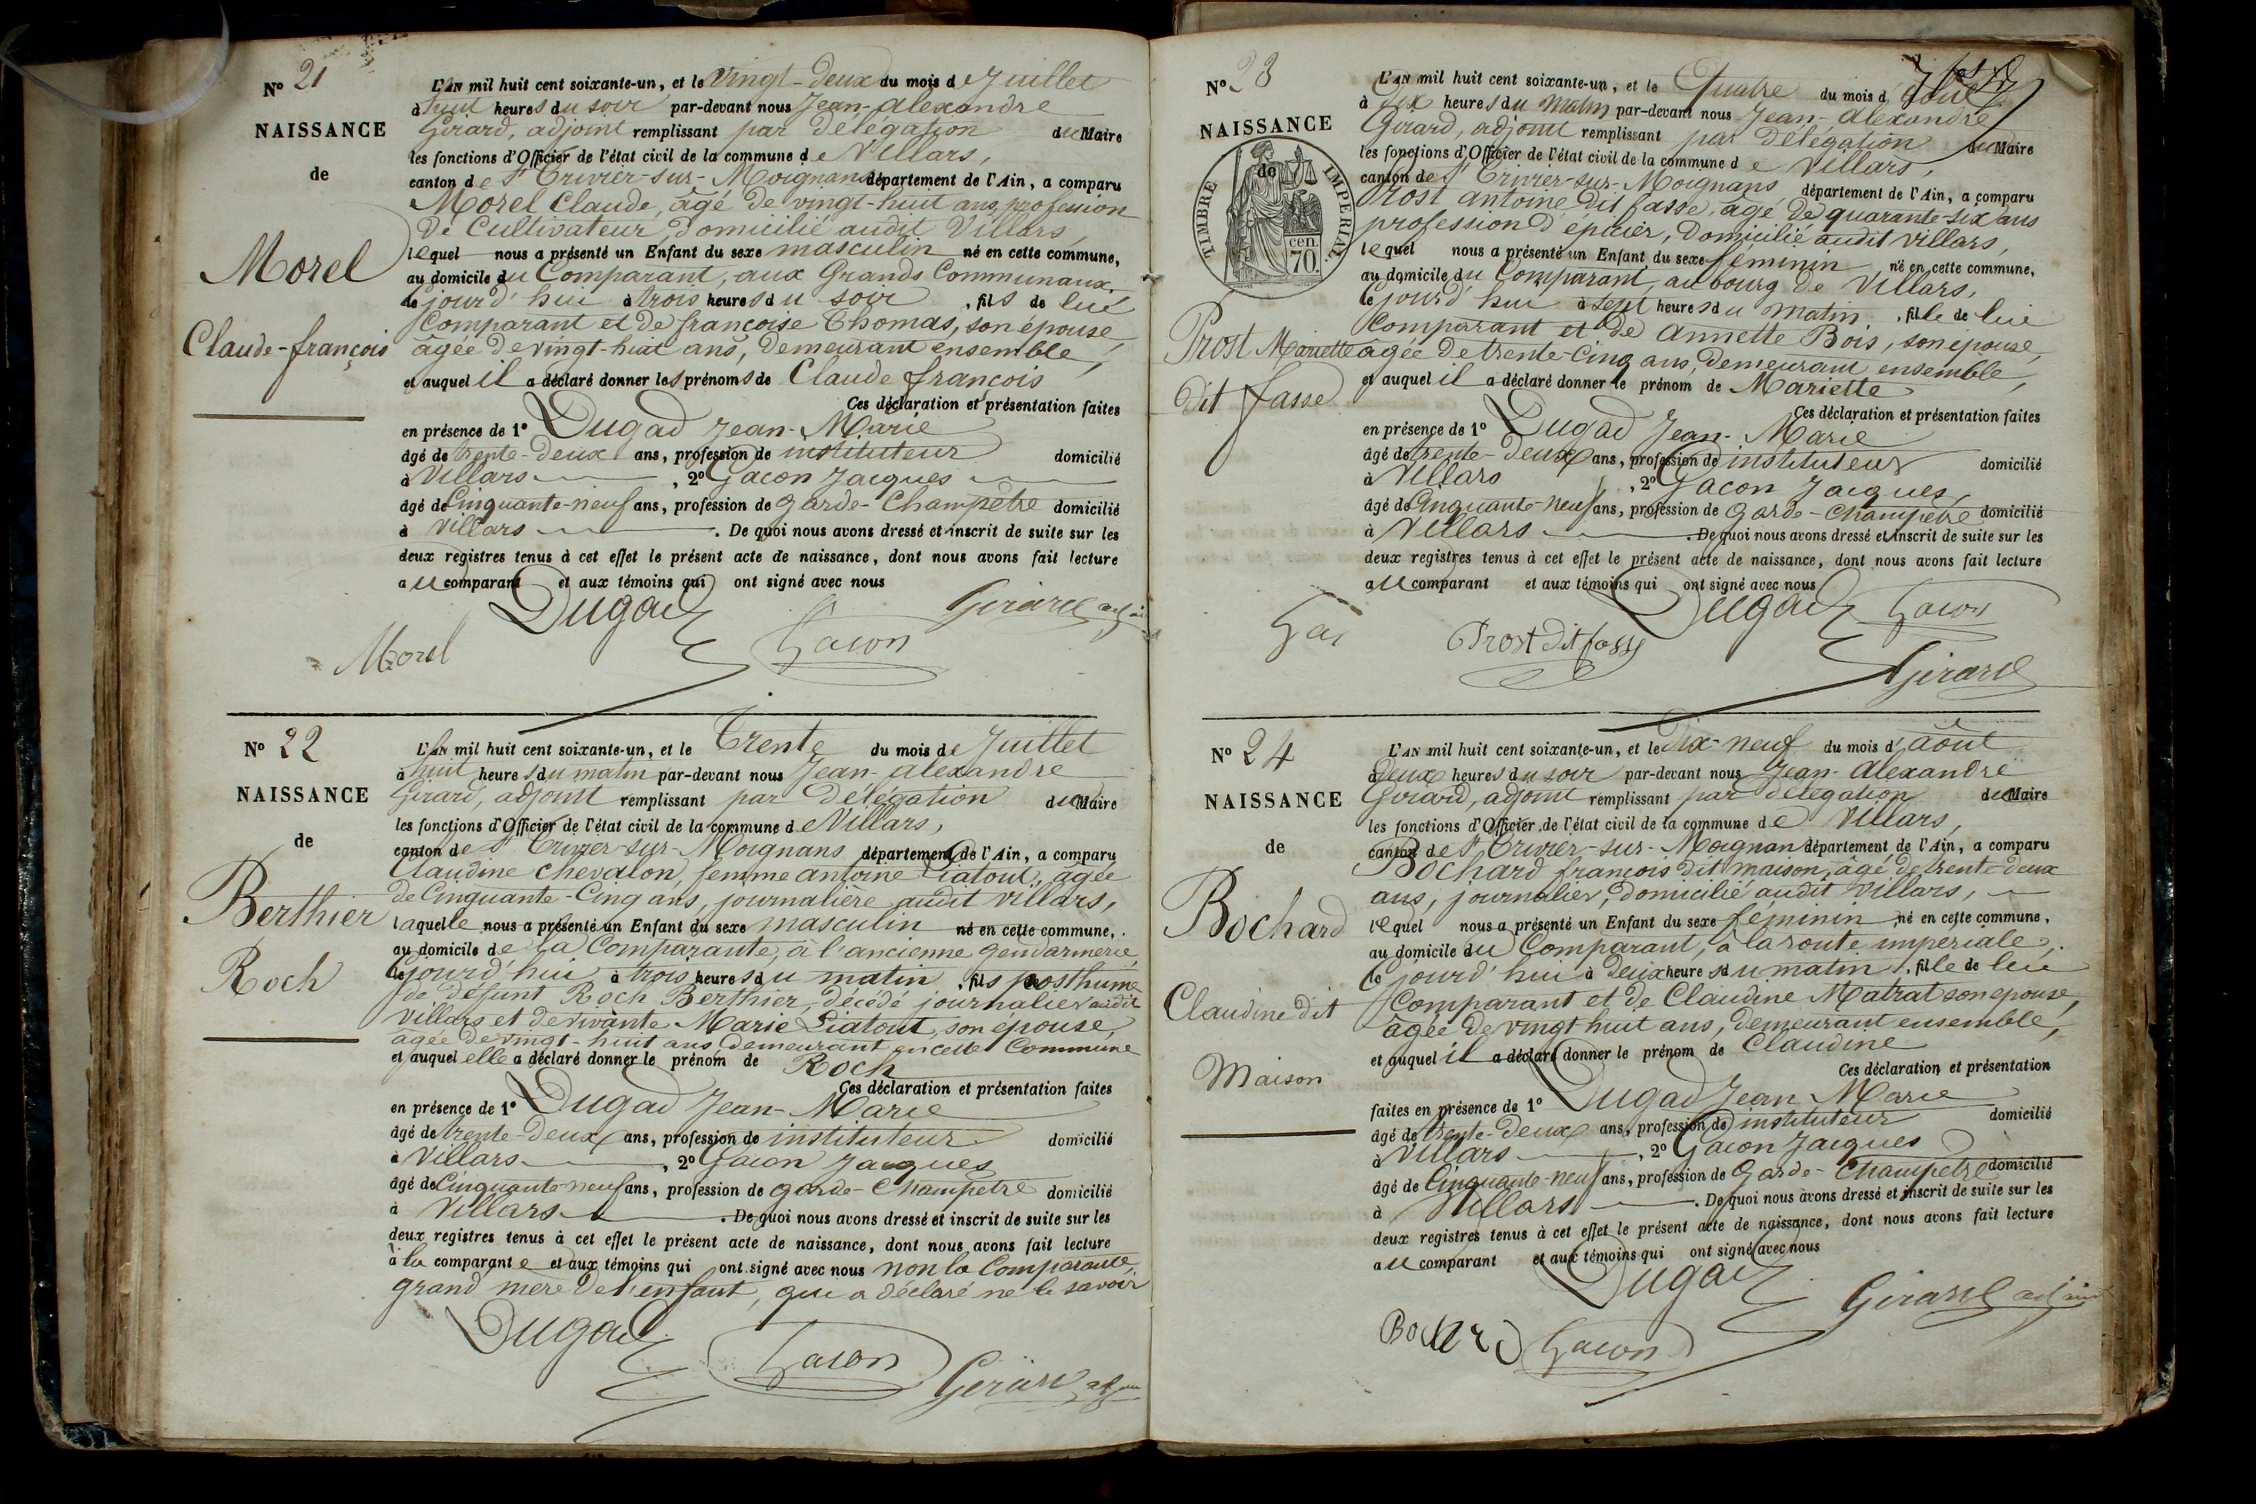 N° 21
NAISSANCE
de
Morel
Claude-françois
L'AN mil huit cent soixante-un, et le vingt-deux du mois de Juillet
à huit heures du soir par-devant nous Jean-alexandre
Girard, adjoint remplissant par délégation du Maire
les fonctions d'Officier de l'état civil de la commune de Villars,
canton de St Trivier-sur-Moignans département de l'Ain, a comparu
Morel Claude, âgé de vingt-huit ans, profession
de Cultivateur, domicilié audit Villars,
lequel nous a présenté un Enfant du sexe masculin né en cette commune,
au domicile du Comparant, aux Grands Communaux,
le jourd'hui à trois heures du soir, fils de lui
Comparant et de françoise Thomas, son épouse,
âgée de vingt-huit ans, demeurant ensemble,
et auquel il a déclaré donner les prénoms de Claude françois
Ces déclaration et présentation faites
en présence de 1° Dugad Jean-Marie
âgé de trente-deux ans, profession de instituteur domicilié
à Villars, 2° Gacon Jacques
âgé de Cinquante-neuf ans, profession de garde-Champêtre domicilié
à Villars. De quoi nous avons dressé et inscrit de suite sur les
deux registres tenus à cet effet le présent acte de naissance, dont nous avons fait lecture
au comparant et aux témoins qui ont signé avec nous
Dugad Girard adjoint
Morel Gacon
N° 22
NAISSANCE
de
Berthier
Roch
L'AN mil huit cent soixante-un, et le Trente du mois de Juillet
à huit heures du matin par-devant nous Jean-alexandre
Girard, adjoint remplissant par délégation du Maire
les fonctions d'Officier de l'état civil de la commune de Villars,
canton de St Trivier-sur-Moignans département de l'Ain, a comparu
Claudine Chevalon, femme antoine Liatout, âgée
de Cinquante-Cinq ans, journalière audit villars,
laquelle nous a présenté un Enfant du sexe masculin né en cette commune,
au domicile de la Comparante, à l'ancienne gendarmerie,
le jourd'hui à trois heures du matin, fils posthume
de défunt Roch Berthier, décédé journalier audit
Villars et de vivante Marie Liatout, son épouse,
âgée de vingt-huit ans demeurant en cette Commune
et auquel elle a déclaré donner le prénom de Roch
Ces déclaration et présentation faites
en présence de 1° Dugad Jean-Marie
âgé de trente-deux ans, profession de instituteur domicilié
à Villars, 2° Gacon Jacques
âgé de Cinquante-neuf ans, profession de garde-Champêtre domicilié
à Villars. De quoi nous avons dressé et inscrit de suite sur les
deux registres tenus à cet effet le présent acte de naissance, dont nous avons fait lecture
à la comparante et aux témoins qui ont signé avec nous non la Comparante,
grand mère de l'enfant, qui a déclaré ne le savoir
Dugad Gacon Girard adjoint
N° 23
NAISSANCE
de
TIMBRE IMPERIAL
cen.
70.
Prost Mariette
dit fasse
L'AN mil huit cent soixante-un, et le Quatre du mois d'août
à Dix heures du matin par-devant nous Jean-alexandre
Girard, adjoint remplissant par délégation du Maire
les fonctions d'Officier de l'état civil de la commune de Villars,
canton de St Trivier-sur-Moignans département de l'Ain, a comparu
Prost antoine dit fasse, âgé de quarante-six ans
profession d'épicier, domicilié audit villars,
lequel nous a présenté un Enfant du sexe féminin, né en cette commune,
au domicile du Comparant, au bourg de Villars,
le jourd'hui à sept heures du matin, fille de lui
Comparant et de Annette Bois, son épouse,
âgée de trente-Cinq ans, demeurant ensemble,
et auquel il a déclaré donner le prénom de Mariette
Ces déclaration et présentation faites
en présence de 1° Dugad Jean-Marie
âgé de trente-deux ans, profession de instituteur domicilié
à Villars, 2° Gacon Jacques,
âgé de Cinquante-neuf ans, profession de garde-Champêtre domicilié
à Villars. De quoi nous avons dressé et inscrit de suite sur les
deux registres tenus à cet effet le présent acte de naissance, dont nous avons fait lecture
au comparant et aux témoins qui ont signé avec nous
Dugad Gacon
Gac Prost dit fasse
Girard
N° 24
NAISSANCE
de
Bochard
Claudine dit
Maison
L'AN mil huit cent soixante-un, et le Dix-neuf du mois d'août
à Deux heures du soir par-devant nous Jean-alexandre
Girard, adjoint remplissant par délégation du Maire
les fonctions d'Officier de l'état civil de la commune de Villars,
canton de St Trivier-sur-Moignan département de l'Ain, a comparu
Bochard françois dit maison, âgé de trente-deux
ans, journalier, domicilié audit Villars,
lequel nous a présenté un Enfant du sexe féminin, né en cette commune,
au domicile du Comparant, à la route imperiale,
le jourd'hui à deux heures du matin, fille de lui
Comparant et de Claudine Matrat son epouse,
âgée de vingt huit ans, demeurant ensemble,
et auquel il a déclaré donner le prénom de Claudine
Ces déclaration et présentation
faites en présence de 1° Dugad Jean Marie
âgé de trente-deux ans, profession de instituteur domicilié
à Villars, 2° Gacon Jacques
âgé de Cinquante-neuf ans, profession de Garde-Champêtre domicilié
à Villars. De quoi nous avons dressé et inscrit de suite sur les
deux registres tenus à cet effet le présent acte de naissance, dont nous avons fait lecture
au comparant et aux témoins qui ont signé avec nous
Dugad Girard adjoint
Bochard Gacon